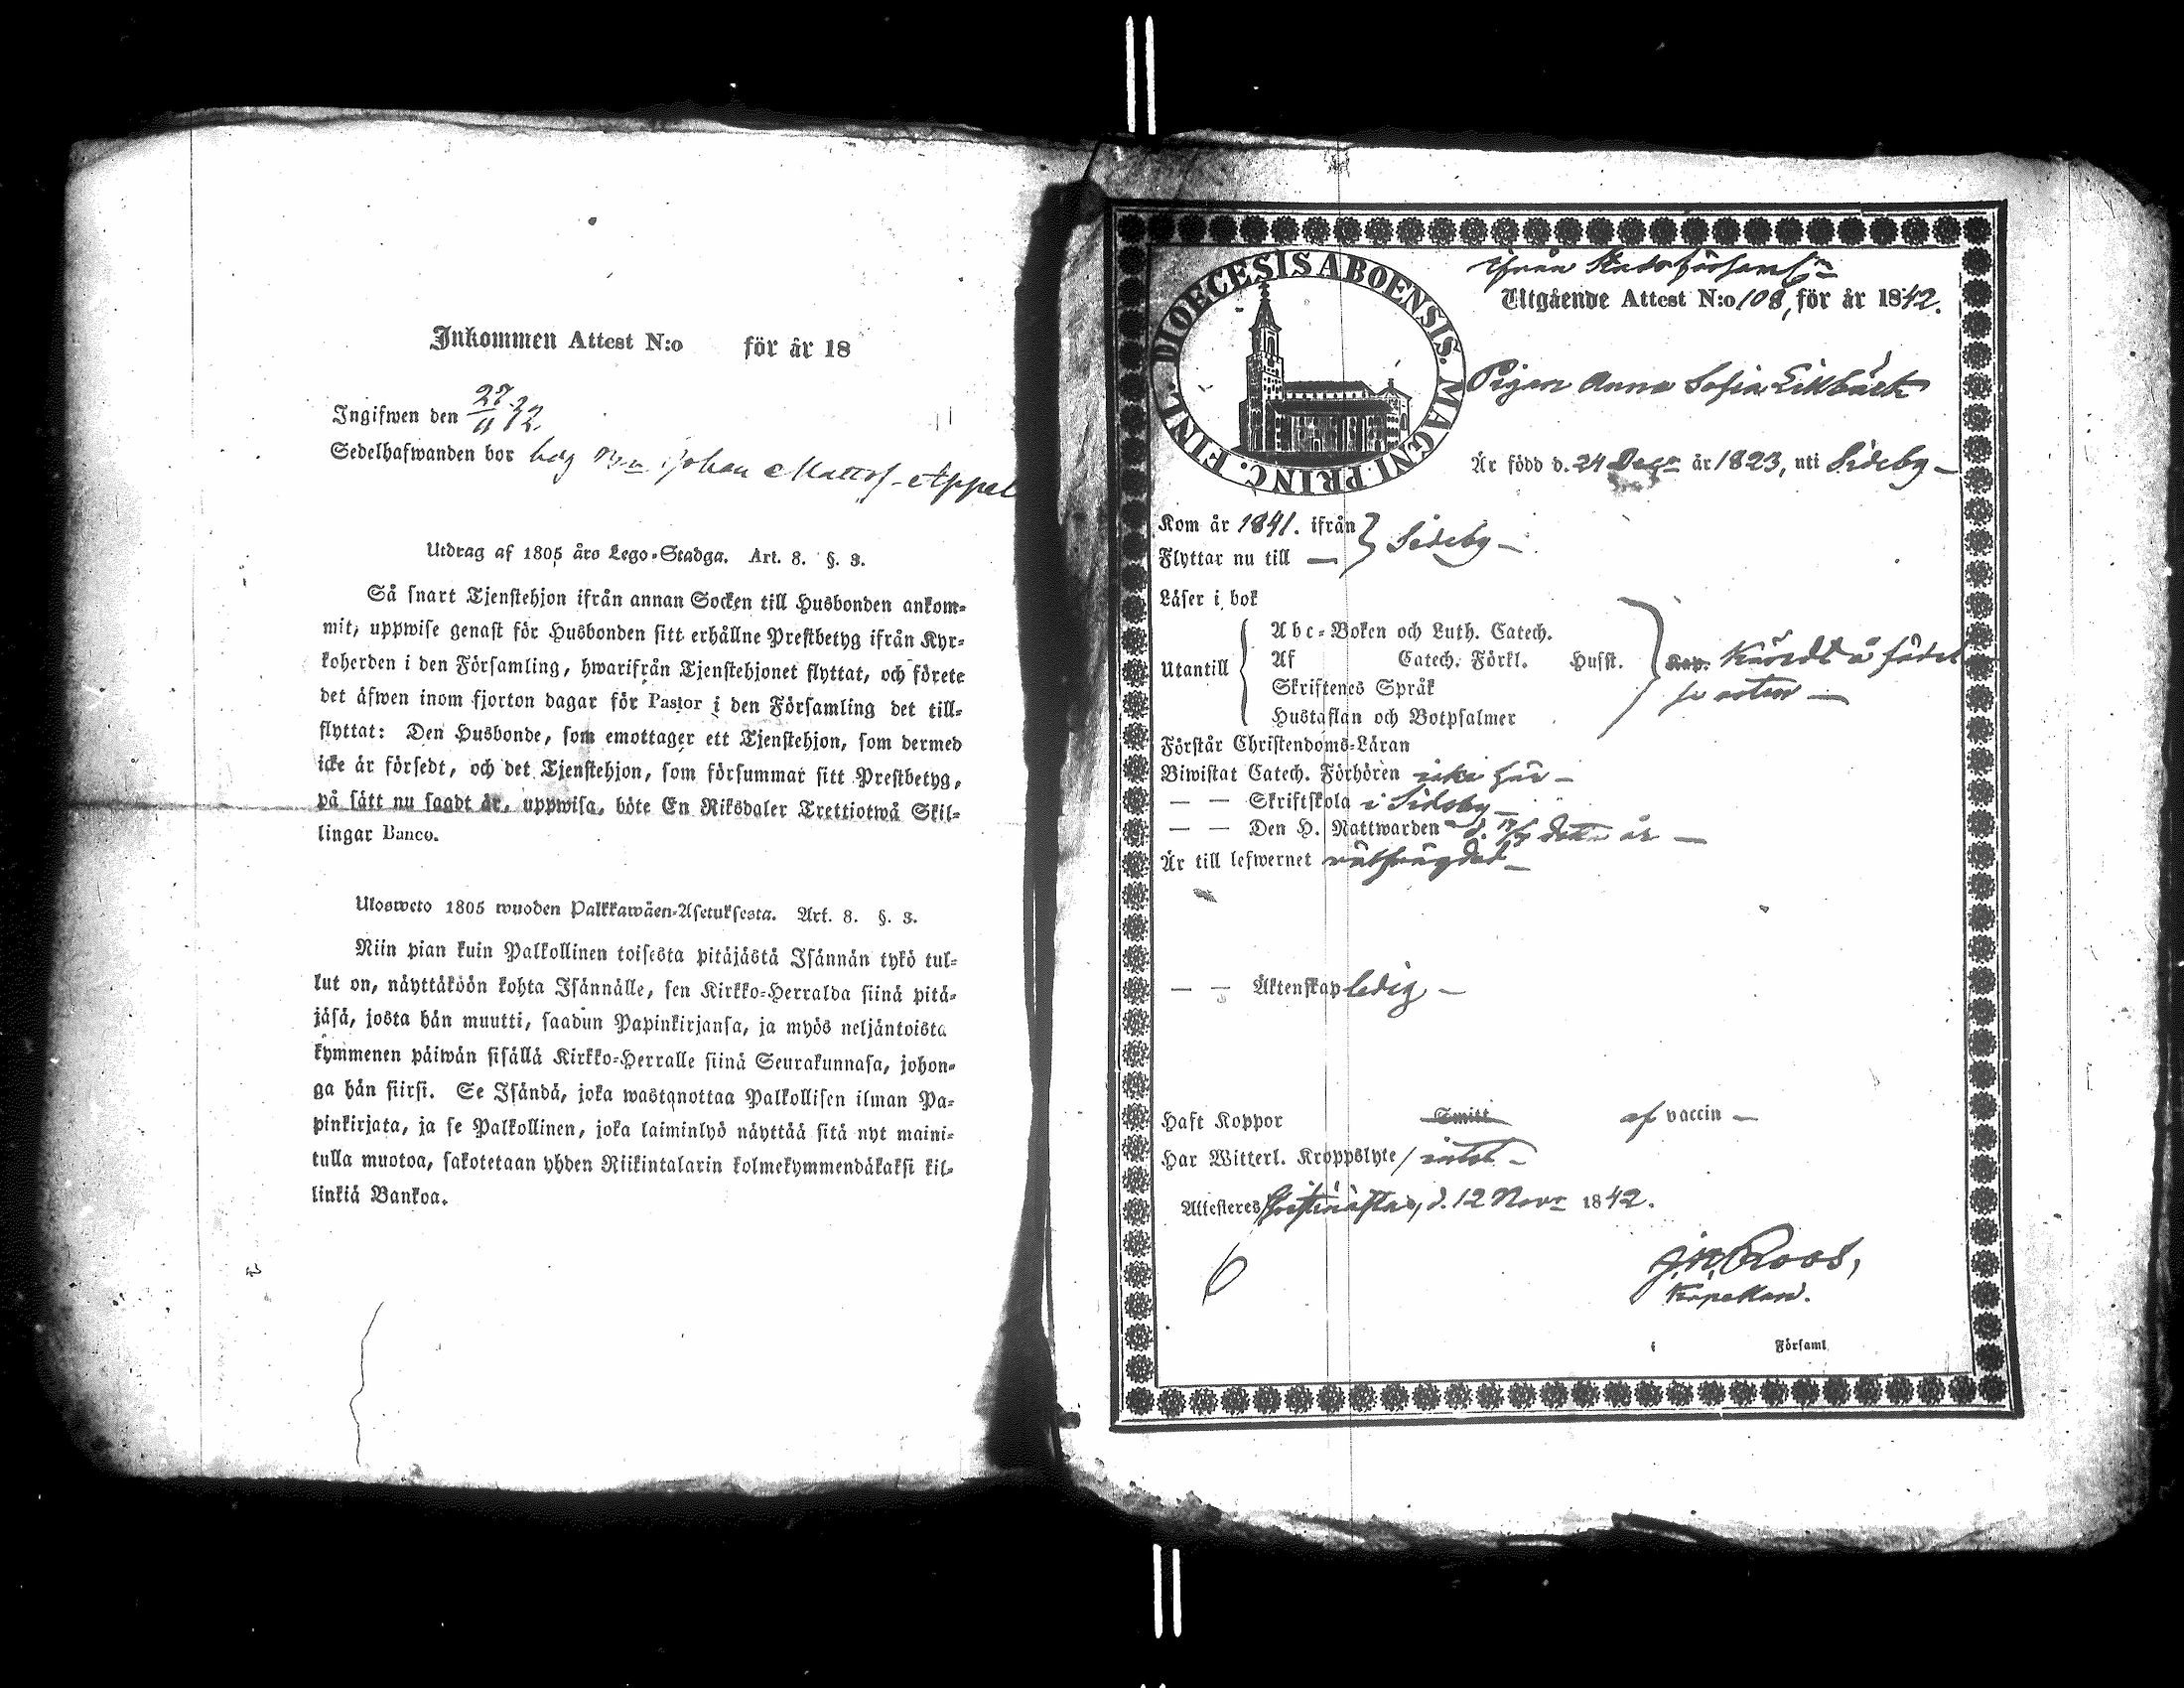 Inkommen Attest N:o för år 18
Ingifwen den 27/11 42
Sedelhafwanden bor hos Johan Mattss. Appel
Utdrag af 1805 års Lego-Stadga. Art. 8. §. 3.
Så snart Tjenstehjon ifrån annan Socken till Husbonden ankom-
mit, uppwise genast för Husbonden sitt erhållne Prestbetyg ifrån Kyr-
koherden i den Församling, hwarifrån Tjenstehjonet flyttat, och förete
det äfwen inom fjorton dagar för Pastor i den Församling det till-
flyttat: Den Husbonde, som emottager ett Tjenstehjon, som dermed
icke är försedt, och det Tjenstehjon, som försummar sitt Prestbetyg,
på sätt nu sagdt är, uppwisa, böte En Riksdaler Trettiotwå Skil-
lingar Banco.
Ulosweto 1805 wuoden Palkkawäen-Asetuksesta. Art. 8. §. 3.
Niin pian kuin Palkollinen toisesta pitäjästä Isännän tykö tul-
lut on, näyttäköön kohta Isännälle, sen Kirkko-Herralda siinä pitä-
jäsä, josta hän muutti, saadun Papinkirjansa, ja myös neljäntoista
kymmenen päiwän sisällä Kirkko-Herralle siinä Seurakunnasa, johon-
ga hän siirsi. Se Isändä, joka wastanottaa Palkollisen ilman Pa-
pinkirjata, ja se Palkollinen, joka laiminlyö näyttää sitä nyt maini-
tulla muotoa, sakotetaan yhden Riikintalarin kolmekymmendäkaksi kil-
linkiä Bankoa.
DIOECESIS ABOENSIS. MAGNI. PRINC. FINL.
ifrån
Utgående Attest N:o 108, för år 1842.
Pigan Anna Sofia Lillbäck
Är född d. 24 Decr år 1823, uti Sideby
Kom år 1841. ifrån } Sideby
Flyttar nu till
Läser i bok
Utantill
Abc-Boken och Luth. Catech.
Af Catech. Förkl. Husst.
Skriftenes Språk
Hustaflan och Botpsalmer
Förstår Christendoms-Läran
Biwistat Catech. Förhören icke här
— — Skriftskola i Sideby
— — Den H. Nattwarden d. detta år
Är till lefwernet välfrägdad
— — Äktenskap ledig
Haft Koppor Smitt af vaccin
Har Witterl. Kroppslyte intet
Attesteres Christinestad, d. 12 Novr 1842.
6
J. M. Roos,
Kapellan.
i Församl.